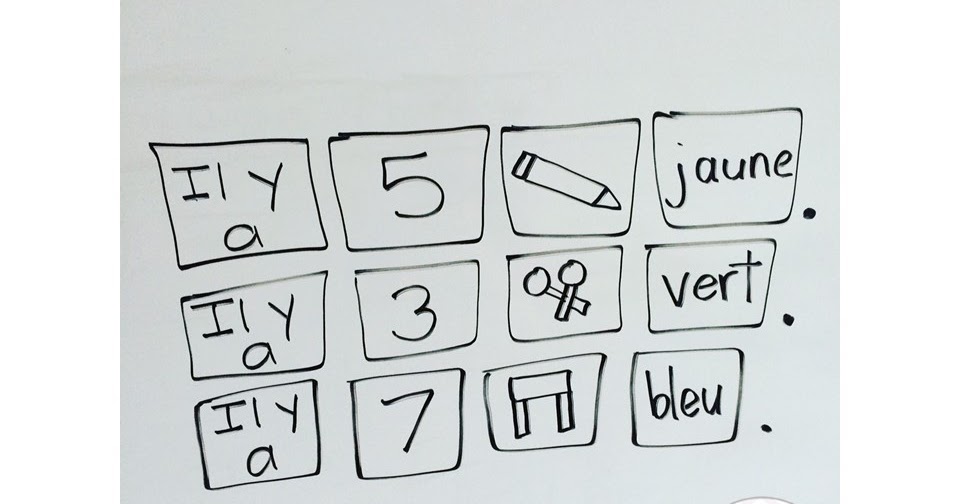 Il y a 5 jaune.
Il y a 3 vert.
Il y a 7 bleu.